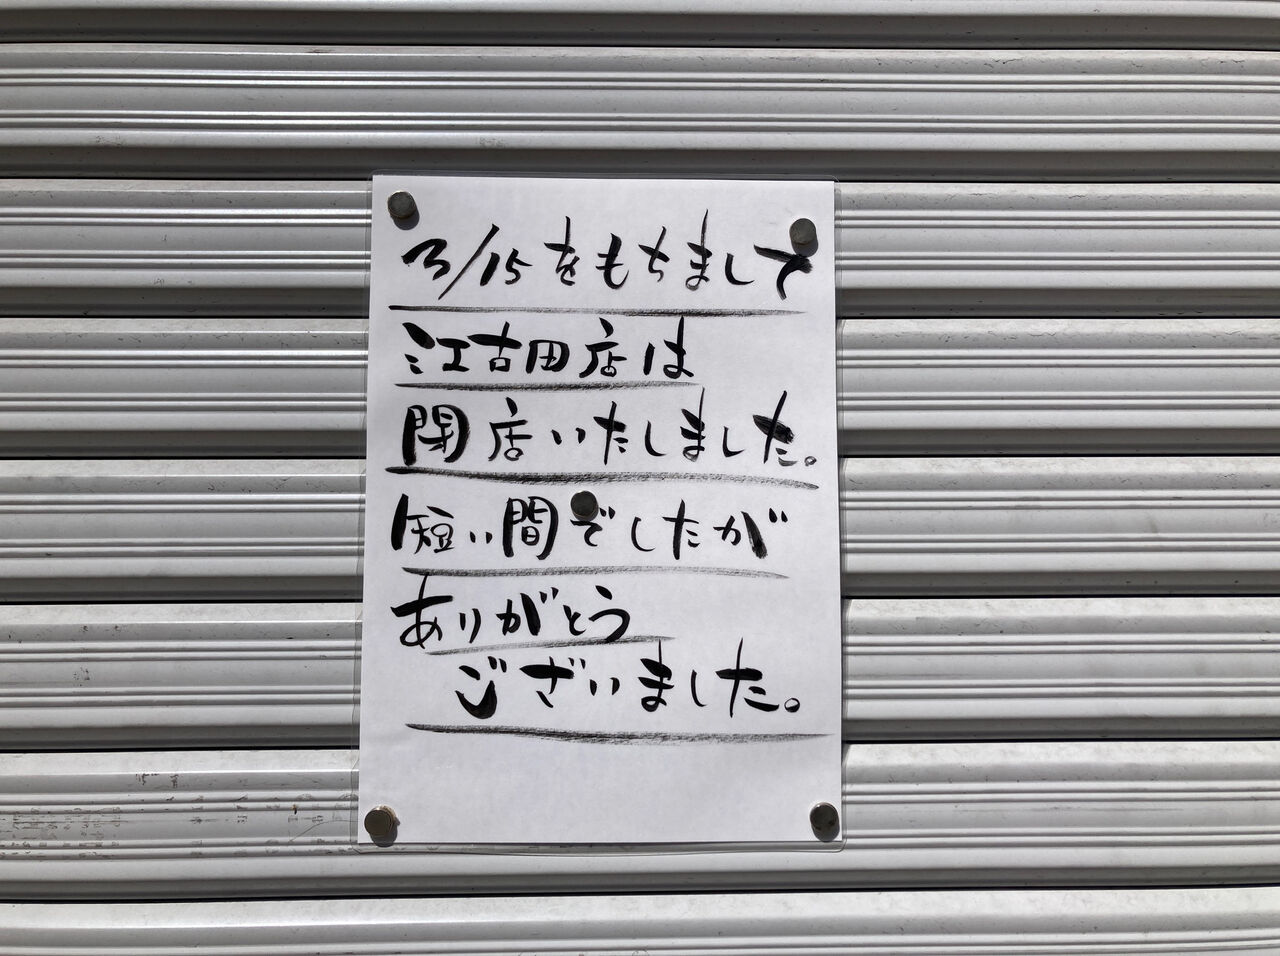 3/15をもちまして
江古田店は
閉店いたしました。
短い間でしたが
ありがとう
ございました。